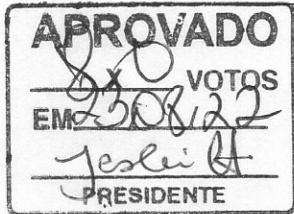 APROVADO
8 x 0 VOTOS
EM 23,08,22
PRESIDENTE